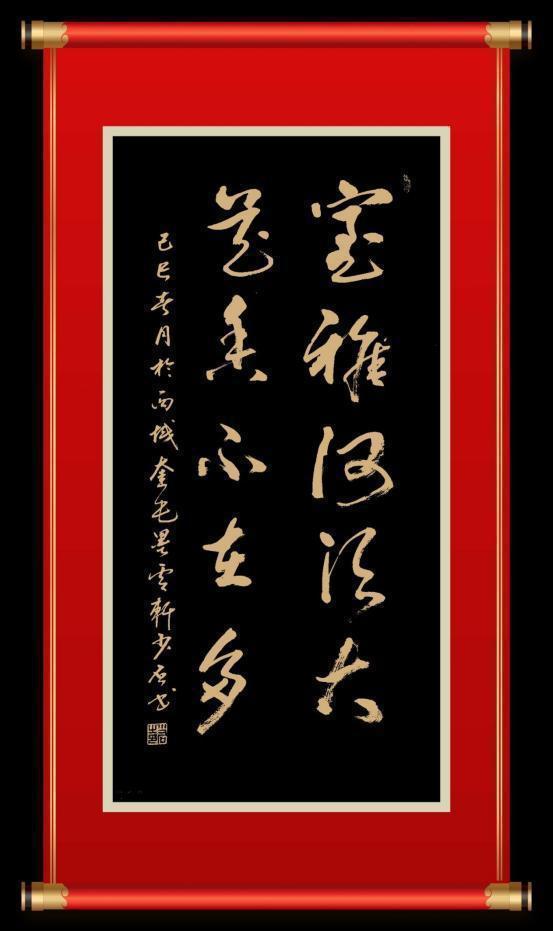 室雅何须大
花香不在多
己巳春月於西域奎屯墨雲軒少石书